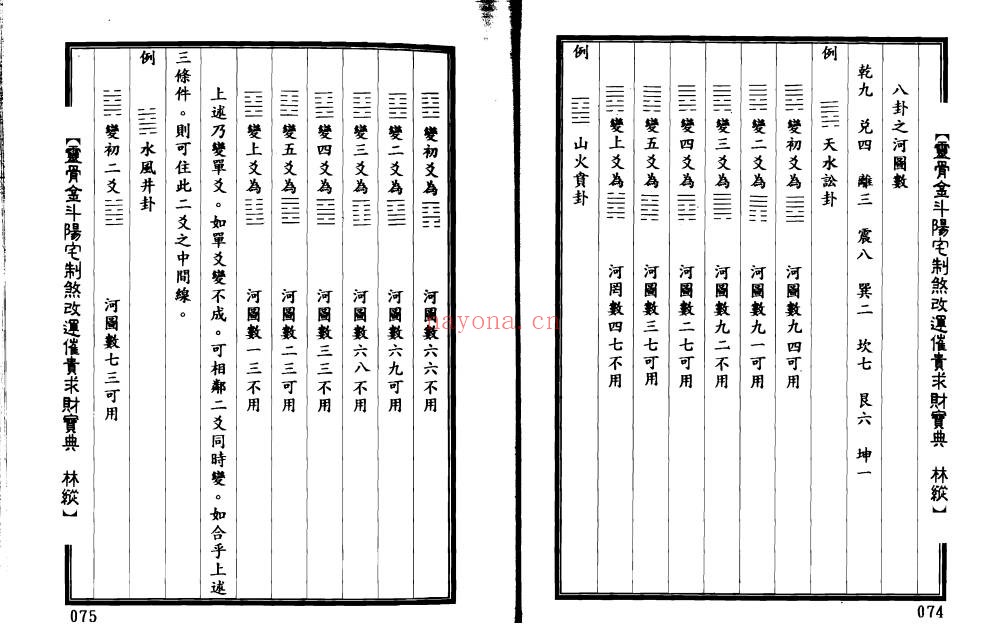 【靈骨金斗陽宅制煞改運催貴求財寶典 林縱】
八卦之河圖數
乾九 兌四 離三 震八 巽二 坎七 艮六 坤一
例 天水訟卦
變初爻為 河圖數九四可用
變二爻為 河圖數九一可用
變三爻為 河圖數九二不用
變四爻為 河圖數二七可用
變五爻為 河圖數三七可用
變上爻為 河罔數四七不用
例 山火賁卦
074
變初爻為 河圖數六六不用
變二爻為 河圖數六九可用
變三爻為 河圖數六八不用
變四爻為 河圖數三三不用
變五爻為 河圖數二三可用
變上爻為 河圖數一三不用
上述乃變單爻。如單爻變不成。可相鄰二爻同時變。如合乎上述
三條件。則可住此二爻之中間線。
例 水風井卦
變初二爻 河圖數七三可用
【靈骨金斗陽宅制煞改運催貴求財寶典 林縱】
075
nayona.cn